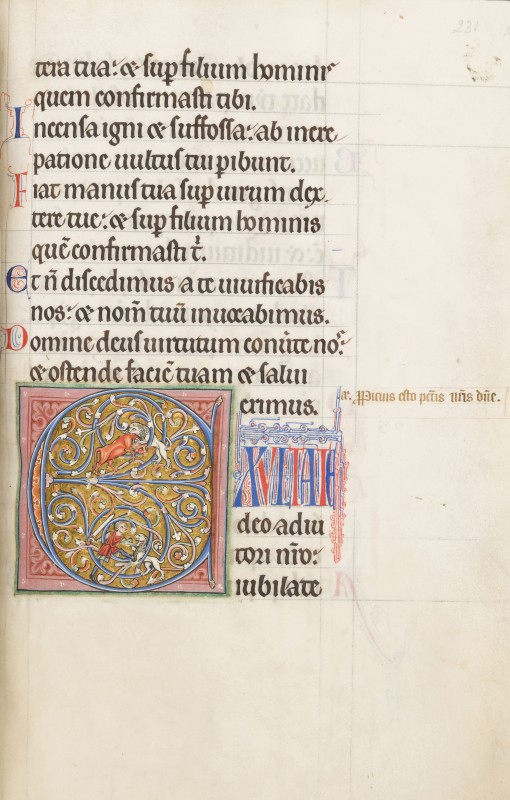 231
tera tua: & sup filium hominis
quem confirmasti tibi.
Incensa igni & suffossa: ab incre
patione uultus tui pibunt.
Fiat manus tua sup uirum dex
tere tue: & sup filium hominis
quē confirmasti t̄.
Et ñ discedimus a te uiuificabis
nos: & nom̄ tuū inuocabimus.
Domine deus uirtutum conūte nos:
& ostende faciē tuam & salui
erimus.
a. Ppicius esto pctīs nrīs dñe.
EXULTATE
deo adiu
tori nr̄o:
iubilate